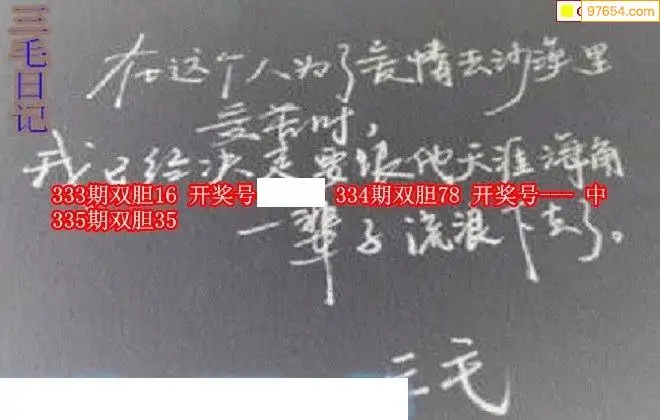 97654.com
三毛日记
在这个人为了爱情去沙漠里
受苦时，
我已经决定要跟他天涯海角
333期双胆16 开奖号 334期双胆78 开奖号--- 中
335期双胆35
一辈子流浪下去了。
三毛